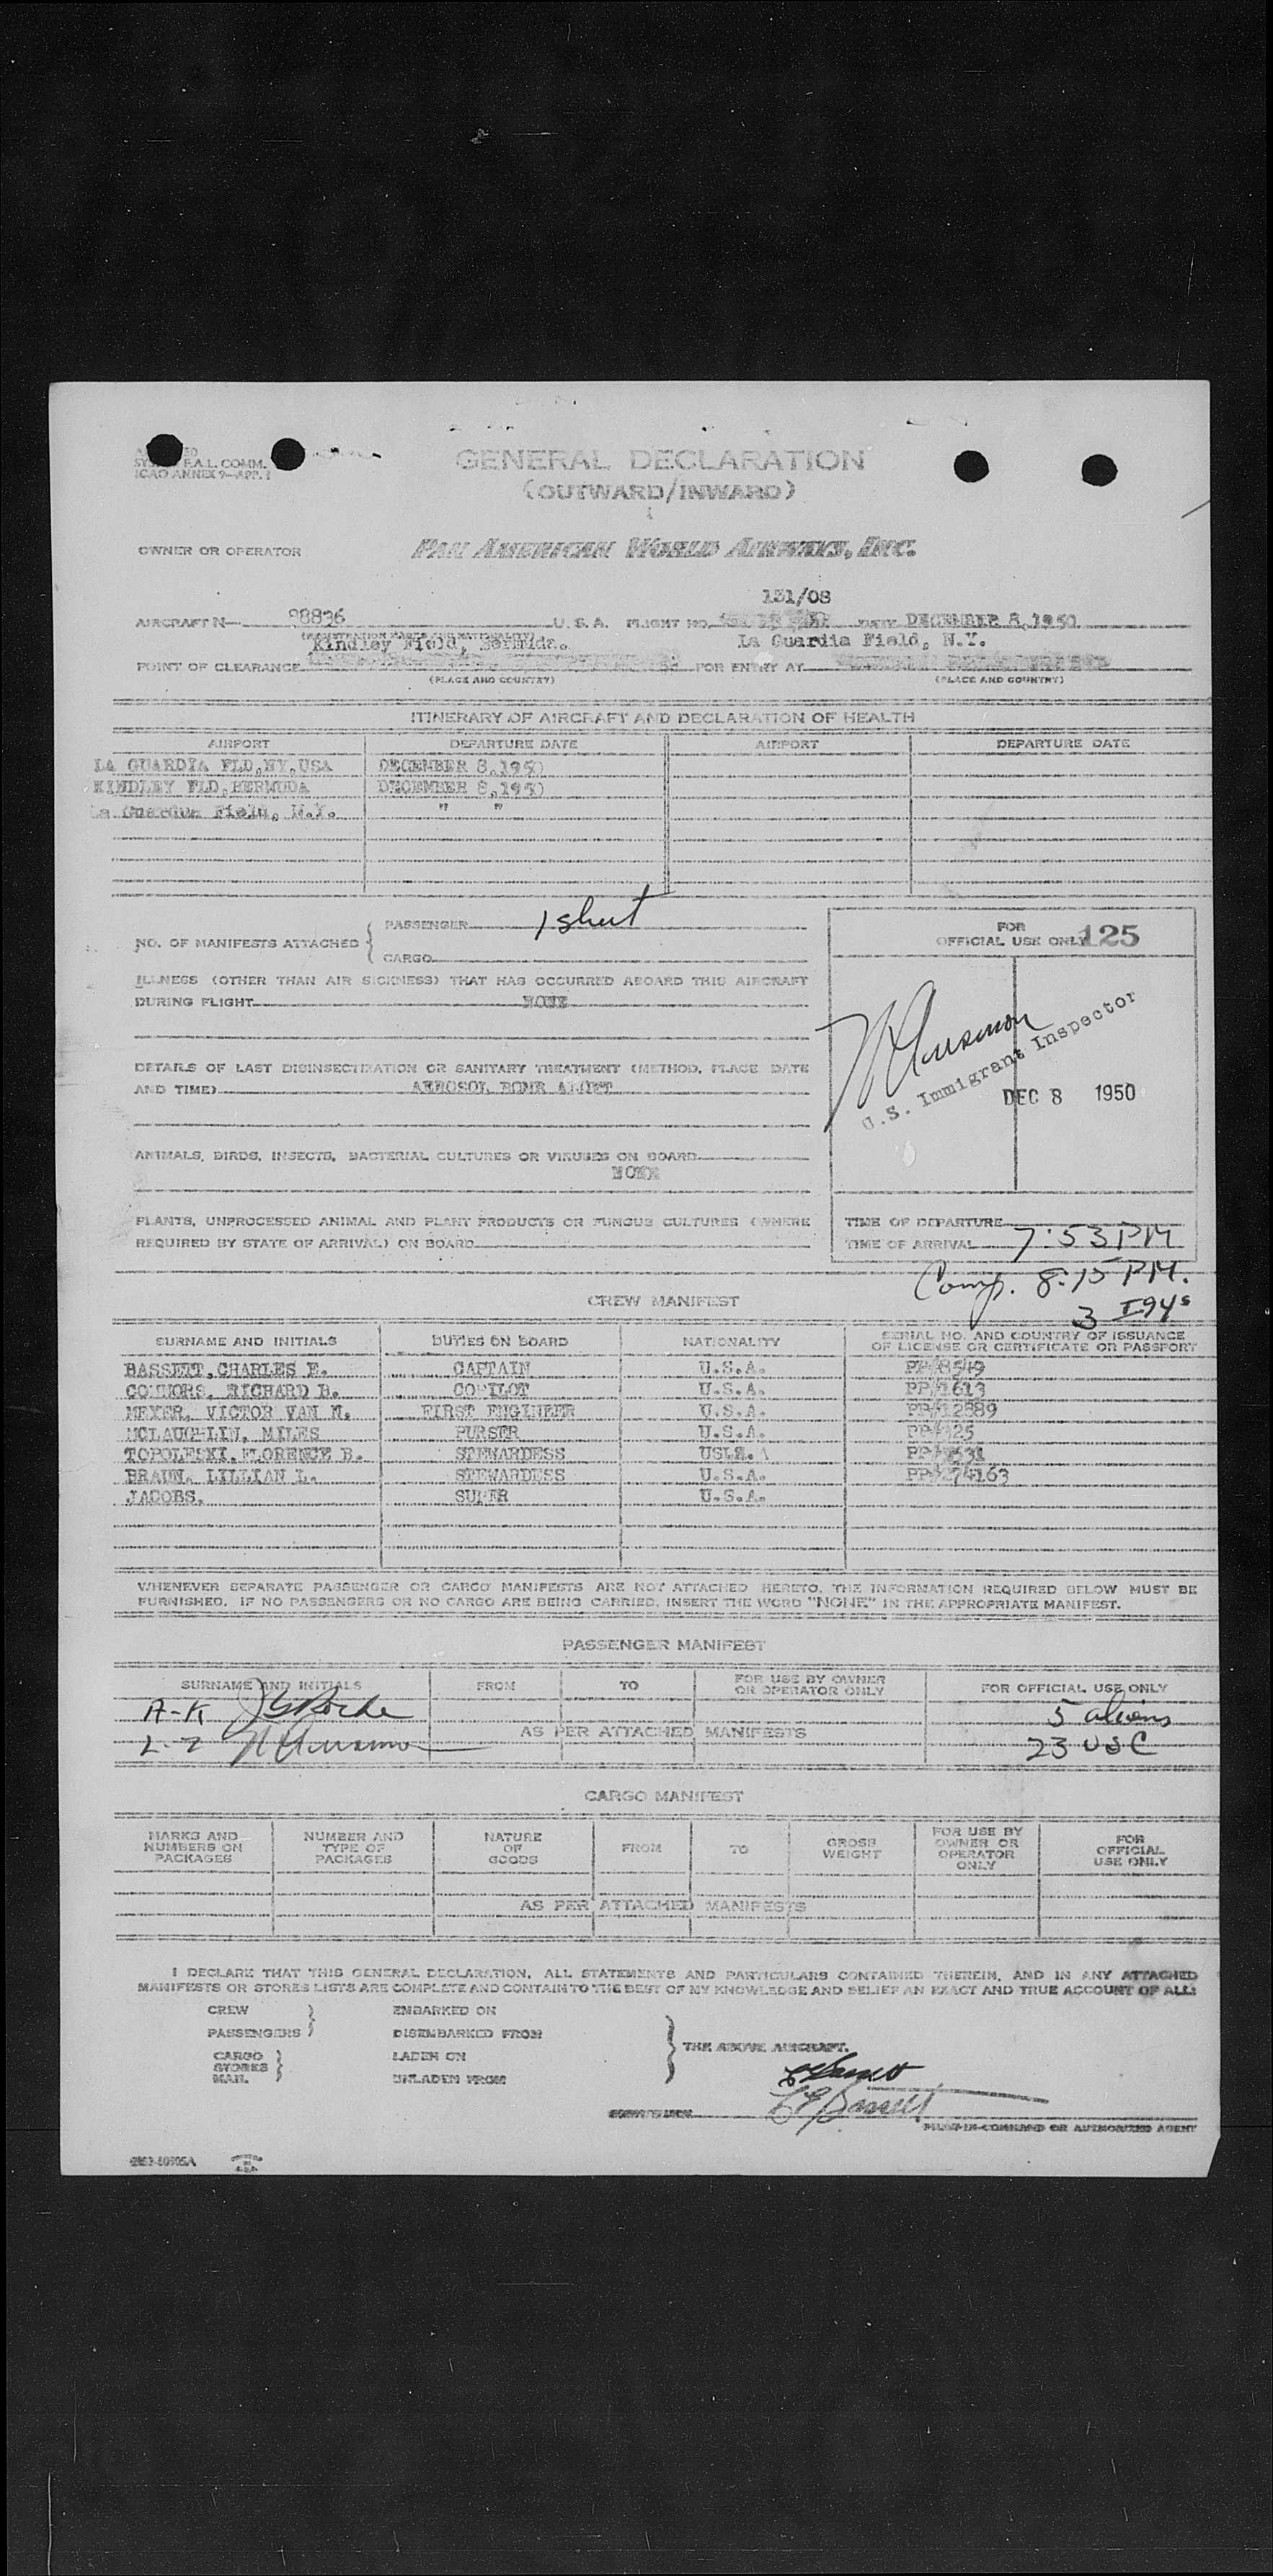 F.A.L. COMM.
ICAO ANNEX 9—APP. 1
GENERAL DECLARATION
(OUTWARD/INWARD)
OWNER OR OPERATOR PAN AMERICAN WORLD AIRWAYS, INC.
131/08
AIRCRAFT N— 88836 U. S. A. FLIGHT NO. DATE DECEMBER 8,1950
(REGISTRATION MARKS AND NATIONALITY)
Kindley Field, Bermuda. La Guardia Field, N.Y.
POINT OF CLEARANCE FOR ENTRY AT
(PLACE AND COUNTRY) (PLACE AND COUNTRY)
ITINERARY OF AIRCRAFT AND DECLARATION OF HEALTH
AIRPORT DEPARTURE DATE AIRPORT DEPARTURE DATE
LA GUARDIA FLD,NY,USA DECEMBER 8,1950
KINDLEY FLD,BERMUDA DECEMBER 8,1950
La Guardia Field, N.Y. " "
NO. OF MANIFESTS ATTACHED { PASSENGER 1 sheet
CARGO
FOR
OFFICIAL USE ONLY 125
ILLNESS (OTHER THAN AIR SICKNESS) THAT HAS OCCURRED ABOARD THIS AIRCRAFT
DURING FLIGHT NONE
U.S. Immigrant Inspector
DEC 8 1950
DETAILS OF LAST DISINSECTIZATION OR SANITARY TREATMENT (METHOD, PLACE, DATE
AND TIME) AEROSOL BOMB ALOFT
ANIMALS, BIRDS, INSECTS, BACTERIAL CULTURES OR VIRUSES ON BOARD
NONE
PLANTS, UNPROCESSED ANIMAL AND PLANT PRODUCTS OR FUNGUS CULTURES (WHERE
REQUIRED BY STATE OF ARRIVAL) ON BOARD
TIME OF DEPARTURE
TIME OF ARRIVAL 7:53 PM
Comp. 8:15 PM.
3 I94s
CREW MANIFEST
SURNAME AND INITIALS DUTIES ON BOARD NATIONALITY SERIAL NO. AND COUNTRY OF ISSUANCE
OF LICENSE OR CERTIFICATE OR PASSPORT
BASSETT,CHARLES E. CAPTAIN U.S.A.
CONNORS, RICHARD B. COPILOT U.S.A. PP#1613
MEYER, VICTOR VAN N. FIRST ENGINEER U.S.A. PP#12889
MCLAUGHLIN, MILES PURSER U.S.A.
TOPOLESKI,FLORENCE B. STEWARDESS
BRAUN, LILLIAN L. STEWARDESS U.S.A.
JACOBS, SUPER U.S.A.
WHENEVER SEPARATE PASSENGER OR CARGO MANIFESTS ARE NOT ATTACHED HERETO, THE INFORMATION REQUIRED BELOW MUST BE
FURNISHED. IF NO PASSENGERS OR NO CARGO ARE BEING CARRIED, INSERT THE WORD "NONE" IN THE APPROPRIATE MANIFEST.
PASSENGER MANIFEST
SURNAME AND INITIALS FROM TO FOR USE BY OWNER
OR OPERATOR ONLY FOR OFFICIAL USE ONLY
A-K 5 aliens
AS PER ATTACHED MANIFESTS
L-Z 23 USC
CARGO MANIFEST
MARKS AND
NUMBERS ON
PACKAGES NUMBER AND
TYPE OF
PACKAGES NATURE
OF
GOODS FROM TO GROSS
WEIGHT FOR USE BY
OWNER OR
OPERATOR
ONLY FOR
OFFICIAL
USE ONLY
AS PER ATTACHED MANIFESTS
I DECLARE THAT THIS GENERAL DECLARATION, ALL STATEMENTS AND PARTICULARS CONTAINED THEREIN, AND IN ANY ATTACHED
MANIFESTS OR STORES LISTS ARE COMPLETE AND CONTAIN TO THE BEST OF MY KNOWLEDGE AND BELIEF AN EXACT AND TRUE ACCOUNT OF ALL:
CREW } EMBARKED ON
PASSENGERS DISEMBARKED FROM
CARGO LADEN ON
STORES }
MAIL UNLADEN FROM
} THE ABOVE AIRCRAFT.
CE Bassett
CE Bassett
PILOT-IN-COMMAND OR AUTHORIZED AGENT